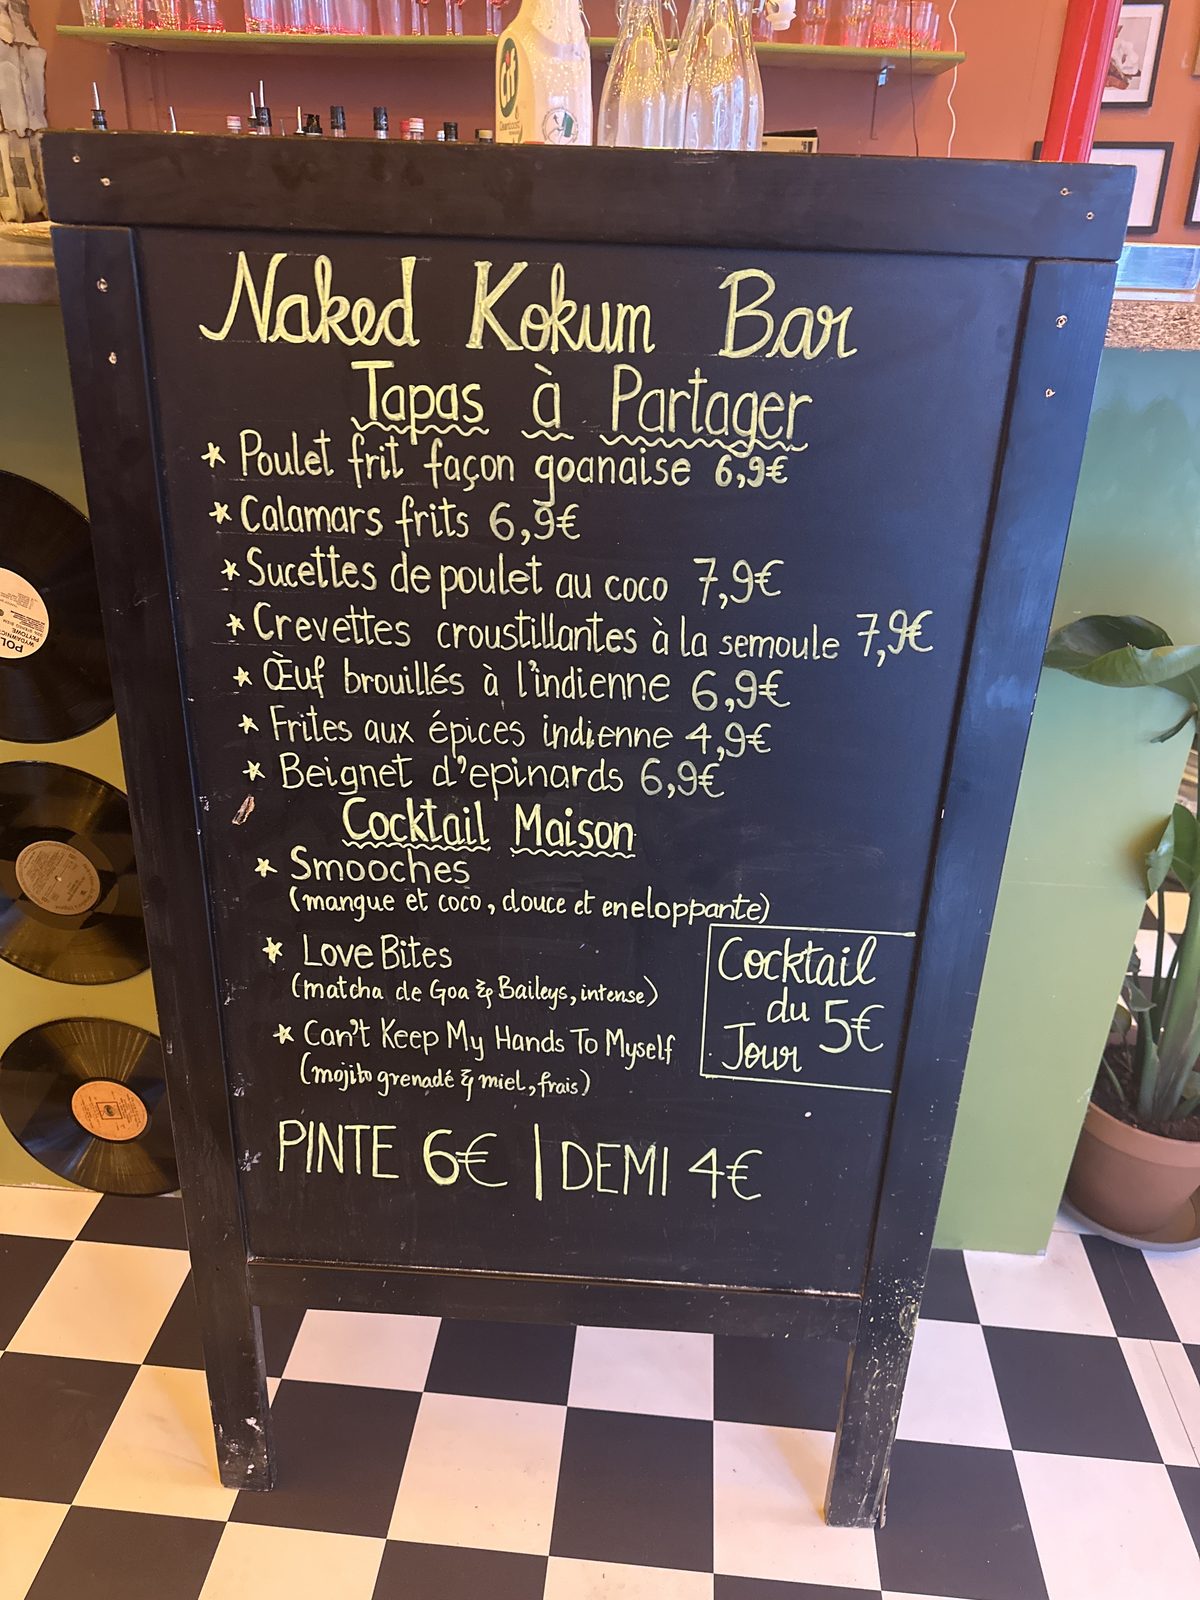 Cif
Naked Kokum Bar
Tapas à Partager
* Poulet frit façon goanaise 6,9€
* Calamars frits 6,9€
* Sucettes de poulet au coco 7,9€
* Crevettes croustillantes à la semoule 7,9€
* Œuf brouillés à l'indienne 6,9€
* Frites aux épices indienne 4,9€
* Beignet d'epinards 6,9€
Cocktail Maison
* Smooches
(mangue et coco, douce et eneloppante)
* Love Bites
(matcha de Goa & Baileys, intense)
* Can't Keep My Hands To Myself
(mojito grenadé & miel, frais)
Cocktail
du 5€
Jour
PINTE 6€ | DEMI 4€